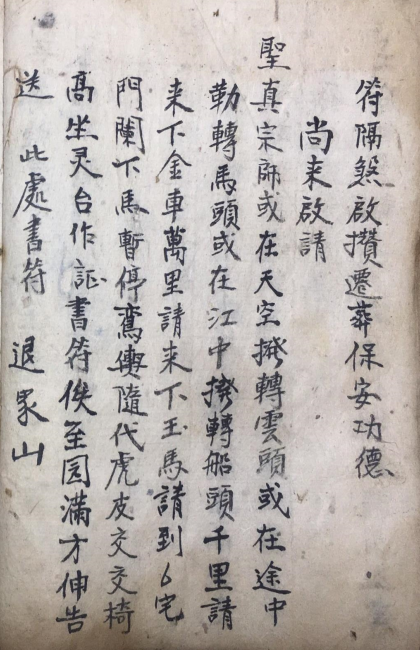 符隔煞啟攢遷葬保安功德
尚来啟請
聖真宗師或在天空撥轉雲頭或在途中
勒轉馬頭或在江中撥轉船頭千里請
来下金車萬里請来下玉馬請到宅
門闌下馬暫停鸞輿隨代虎皮交交椅
高坐灵台作証書符俟至园滿才伸告
送 此處書符 退冢山